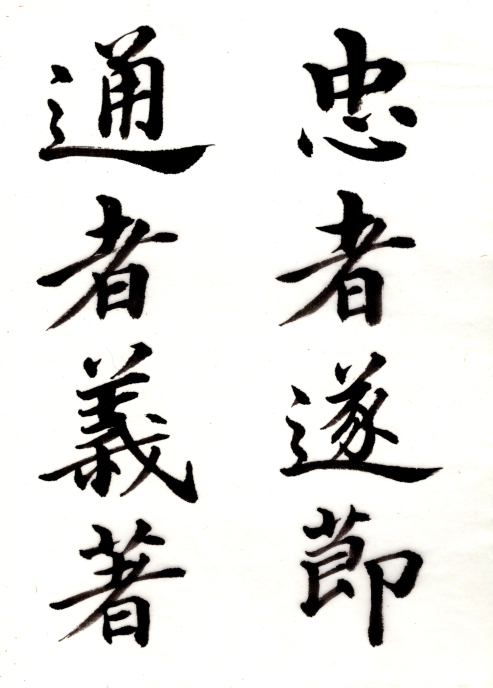 忠者遂節
通者義著